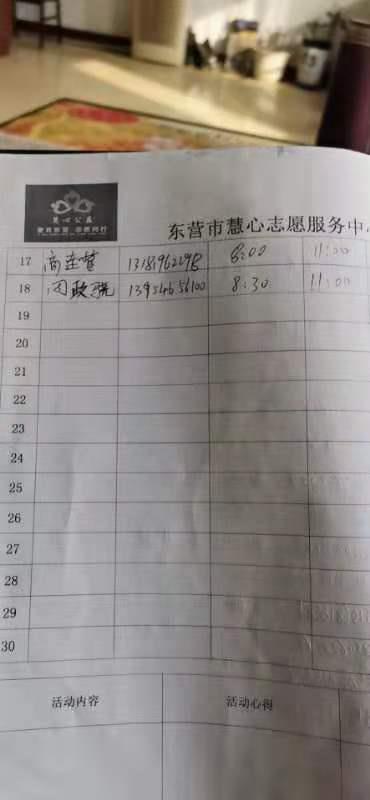 慧心公益
东营市慧心志愿服务中
17 高连营 13181962098 8:00 11:00
18 闫政 13954656100 8:30 11:00
19
20
21
22
23
24
25
26
27
28
29
30
活动内容 活动心得